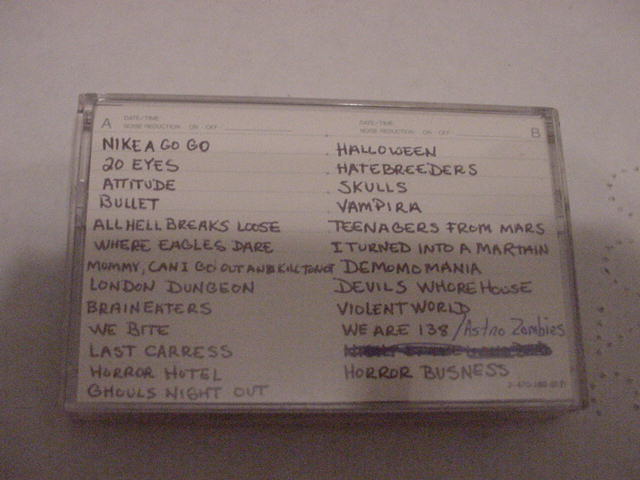 A
DATE/TIME:
NOISE REDUCTION: ON OFF
NIKE A GO GO
20 EYES
ATTITUDE
BULLET
ALL HELL BREAKS LOOSE
WHERE EAGLES DARE
MOMMY, CAN I GO OUT AND KILL TONOT
LONDON DUNGEON
BRAINEATERS
WE BITE
LAST CARRESS
HORROR HOTEL
GHOULS NIGHT OUT
DATE/TIME:
NOISE REDUCTION: ON OFF
B
HALLOWEEN
HATEBREEDERS
SKULLS
VAMPIRA
TEENAGERS FROM MARS
I TURNED INTO A MARTAIN
DEMOMOMANIA
DEVILS WHOREHOUSE
VIOLENT WORLD
WE ARE 138 / Astro Zombies
HORROR BUSNESS